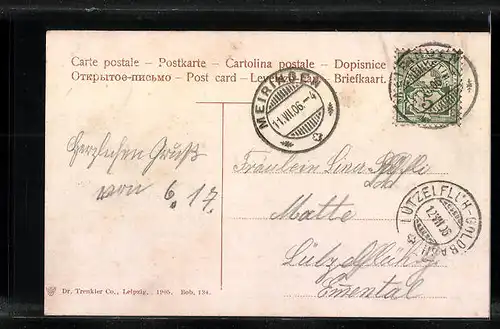 Carte postale – Postkarte – Cartolina postale – Dopisnice
Открытое-письмо – Post card – Levelező-lap – Briefkaart.
MEIRINGEN
11.VII.06.–4
5
Herzlichen Gruß
von 6. 17.
Fräulein Lina
Matte
Lützelflüh
Emental
LÜTZELFLÜH-GOLDBACH
Dr. Trenkler Co., Leipzig. 1905. Bob. 134.